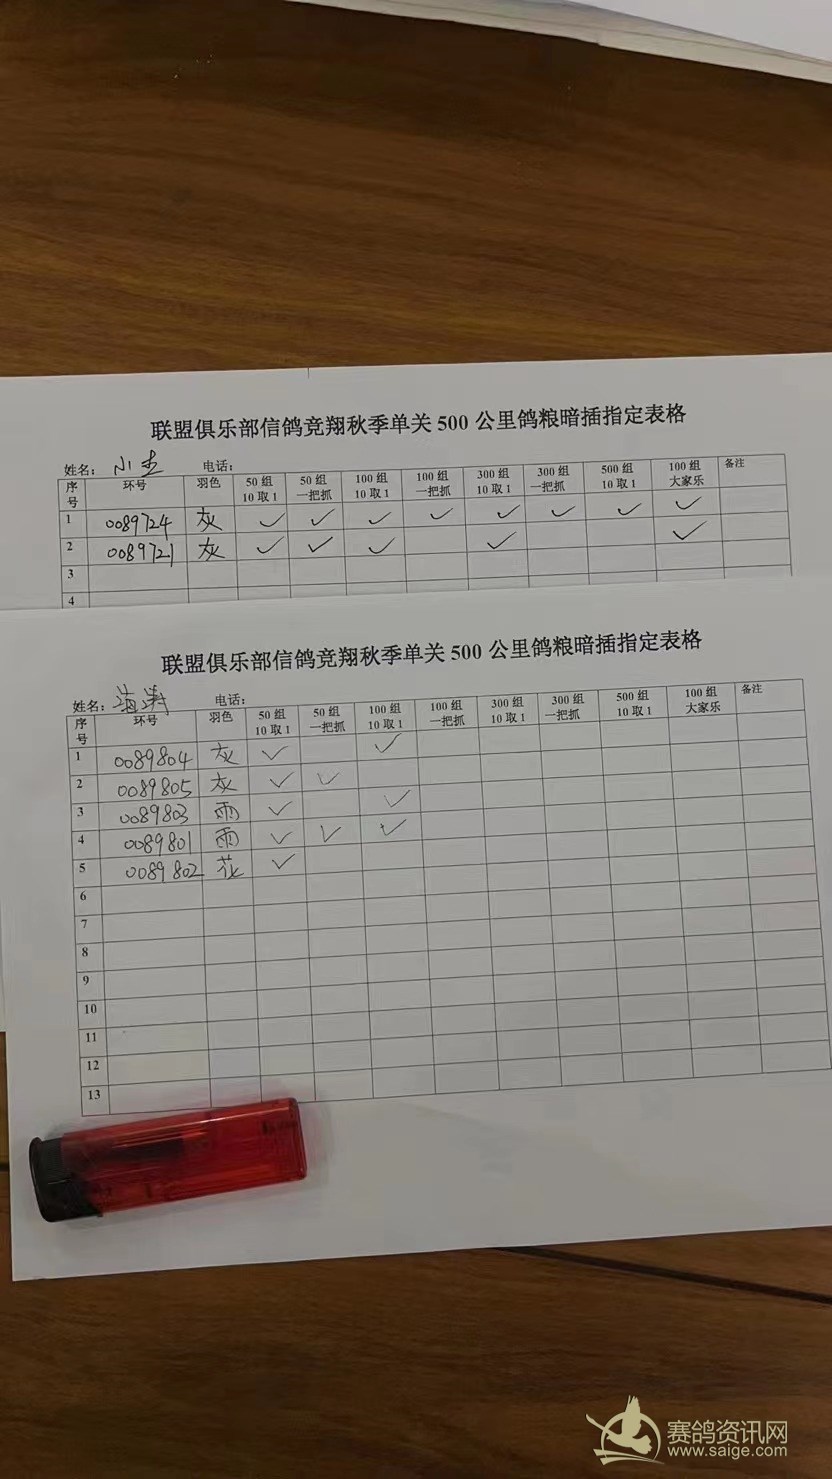 联盟俱乐部信鸽竞翔秋季单关 500 公里鸽粮暗插指定表格
姓名: 小 电话:
序号 环号 羽色 50 组 10 取 1 50 组 一把抓 100 组 10 取 1 100 组 一把抓 300 组 10 取 1 300 组 一把抓 500 组 10 取 1 100 组 大家乐 备注
1 0089724 灰 ✓ ✓ ✓ ✓ ✓ ✓ ✓ ✓
2 0089721 灰 ✓ ✓ ✓ ✓ ✓
3
4
联盟俱乐部信鸽竞翔秋季单关 500 公里鸽粮暗插指定表格
姓名: 海 电话:
序号 环号 羽色 50 组 10 取 1 50 组 一把抓 100 组 10 取 1 100 组 一把抓 300 组 10 取 1 300 组 一把抓 500 组 10 取 1 100 组 大家乐 备注
1 0089804 灰 ✓ ✓
2 0089805 灰 ✓ ✓
3 0089803 雨 ✓ ✓
4 0089801 雨 ✓ ✓ ✓
5 0089802 花 ✓
6
7
8
9
10
11
12
13
赛鸽资讯网
www.saige.com